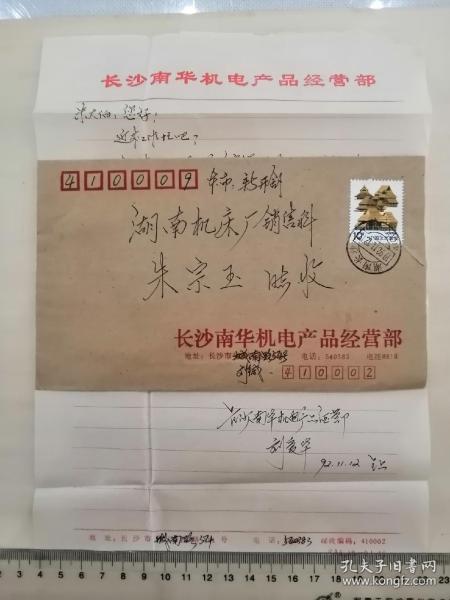 长沙南华机电产品经营部
朱大伯，您好！
近来工作忙吧？
410009 本市
湖南机床厂销售科
朱宗玉 收
长沙南华机电产品经营部
地址：长沙市 电话：540383
410002
长沙南华机电产品经营部
刘爱华
92.11.12
地址：长沙市 号 电话：540383 邮政编码：410002
孔夫子旧书网
www.kongfz.com